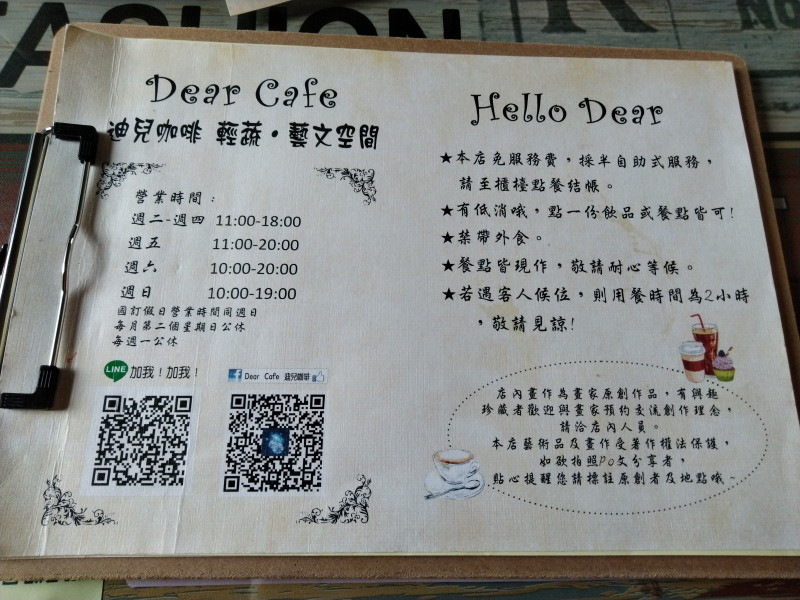 FASHION
NO
Dear Cafe
迪兒咖啡 輕蔬•藝文空間
營業時間：
週二-週四 11:00-18:00
週五 11:00-20:00
週六 10:00-20:00
週日 10:00-19:00
國訂假日營業時間同週日
每月第二個星期日公休
每週一公休
LINE 加我！加我！
f Dear Cafe 迪兒咖啡
Hello Dear
★本店免服務費，採半自助式服務，
請至櫃檯點餐結帳。
★有低消哦，點一份飲品或餐點皆可!
★禁帶外食。
★餐點皆現作，敬請耐心等候。
★若遇客人候位，則用餐時間為2小時
，敬請見諒!
店內畫作為畫家原創作品，有興趣
珍藏者歡迎與畫家預約交流創作理念，
請洽店內人員。
本店藝術品及畫作受著作權法保護，
如欲拍照po文分享者，
貼心提醒您請標註原創者及地點哦~